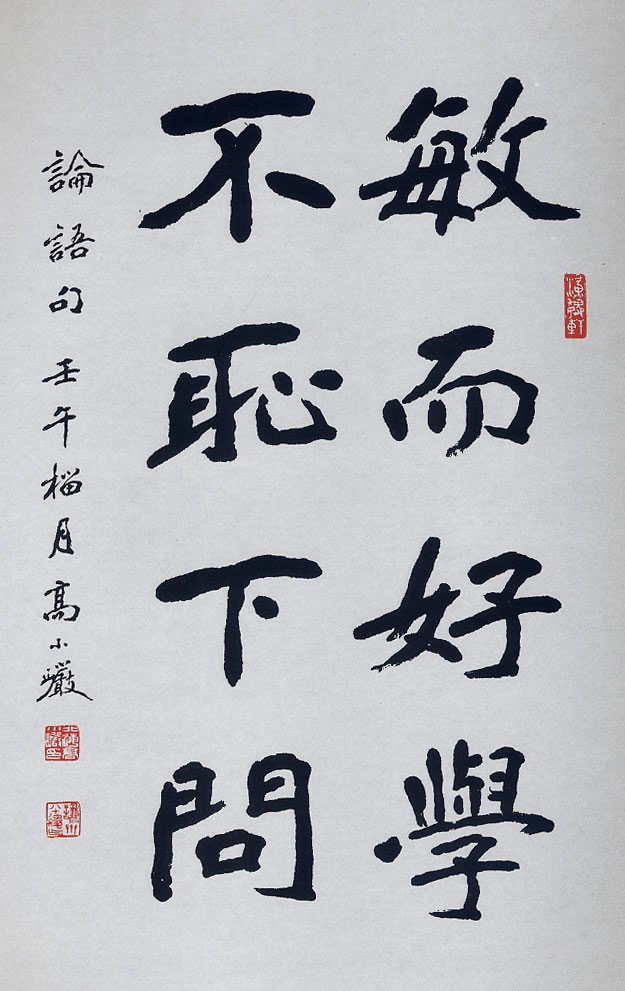 敏而好學
不恥下問
論語句壬午榴月高小巖